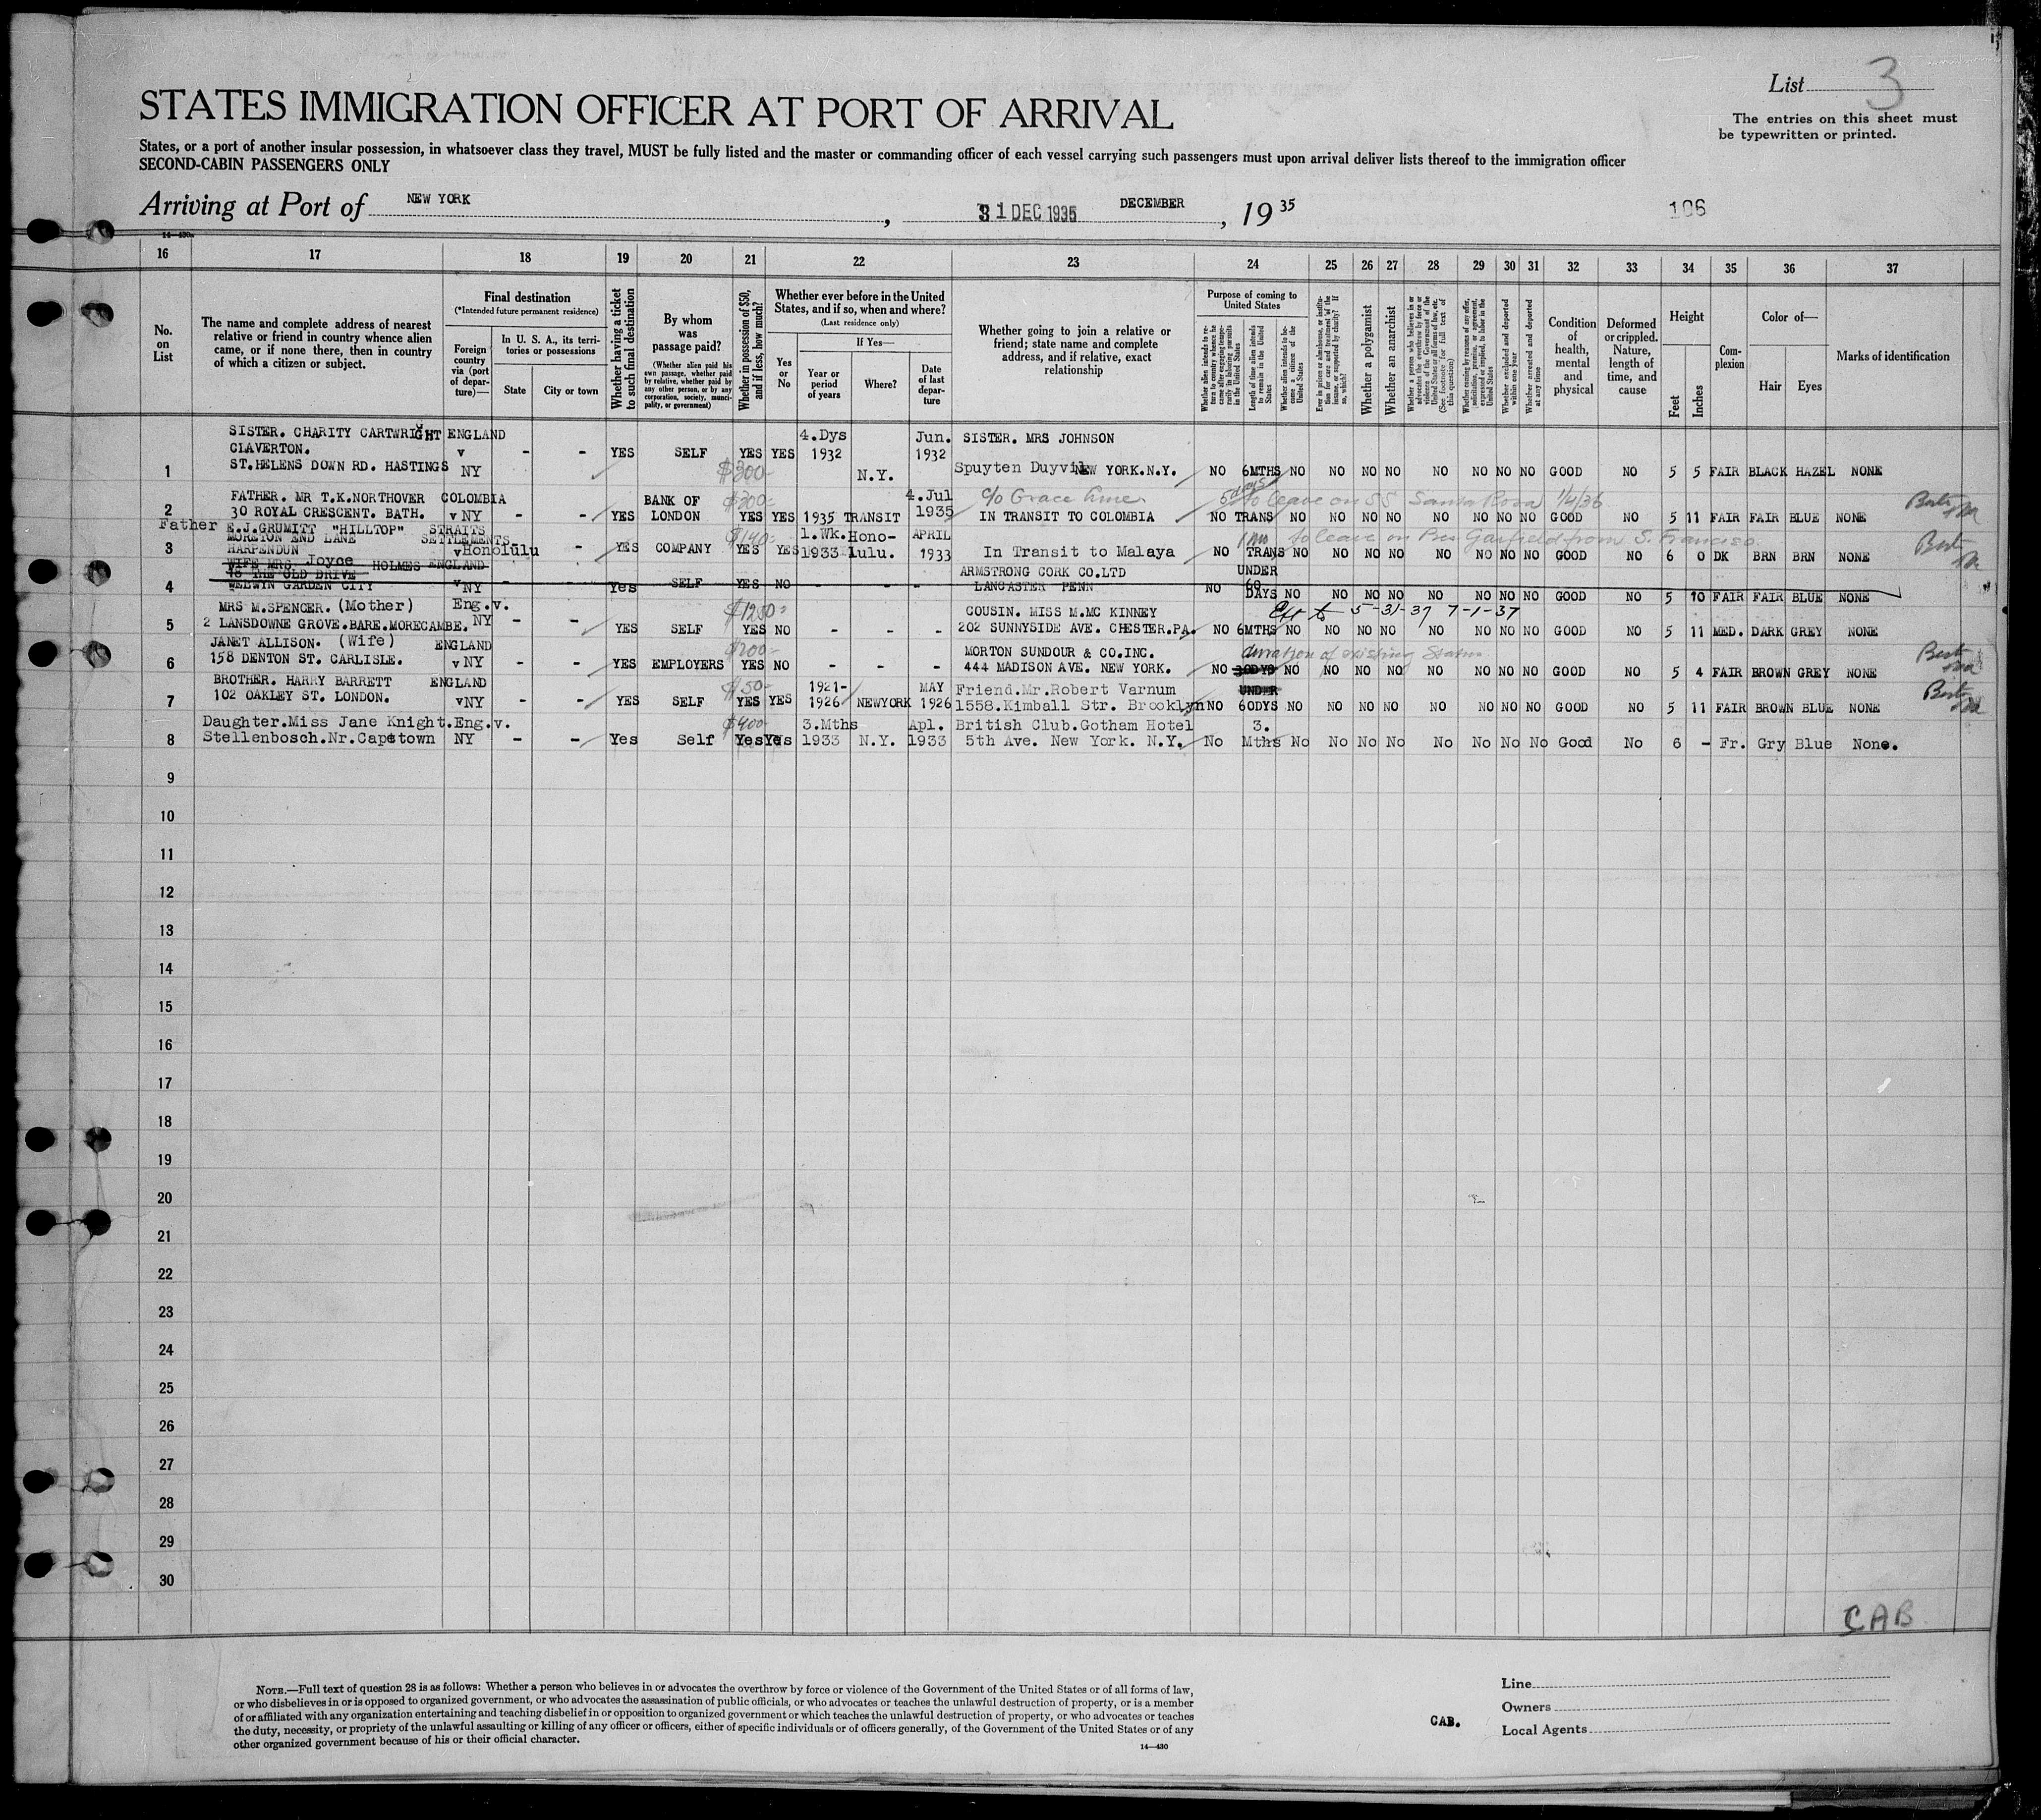 List 3
The entries on this sheet must
be typewritten or printed.
STATES IMMIGRATION OFFICER AT PORT OF ARRIVAL
States, or a port of another insular possession, in whatsoever class they travel, MUST be fully listed and the master or commanding officer of each vessel carrying such passengers must upon arrival deliver lists thereof to the immigration officer
SECOND-CABIN PASSENGERS ONLY
Arriving at Port of NEW YORK, 31 DEC 1935 DECEMBER, 1935
106
16 17 18 19 20 21 22 23 24 25 26 27 28 29 30 31 32 33 34 35 36 37
No. on List
The name and complete address of nearest relative or friend in country whence alien came, or if none there, then in country of which a citizen or subject.
Final destination
(*Intended future permanent residence)
Foreign country via (port of departure)—
In U. S. A., its territories or possessions
State
City or town
Whether having a ticket to such final destination
By whom was passage paid?
(Whether alien paid his own passage, whether paid by relative, whether paid by any other person, or by any corporation, society, municipality, or government)
Whether in possession of $50, and if less, how much?
Whether ever before in the United States, and if so, when and where?
(Last residence only)
Yes or No
If Yes—
Year or period of years
Where?
Date of last departure
Whether going to join a relative or friend; state name and complete address, and if relative, exact relationship
Purpose of coming to United States
Whether alien intends to return to country whence he came after engaging temporarily in laboring pursuits in the United States
Length of time alien intends to remain in the United States
Whether alien intends to become a citizen of the United States
Ever in prison or almshouse, or institution for care and treatment of the insane, or supported by charity? If so, which?
Whether a polygamist
Whether an anarchist
Whether a person who believes in or advocates the overthrow by force or violence of the Government of the United States or all forms of law, etc. (See footnote for full text of this question)
Whether coming by reasons of any offer, solicitation, promise, or agreement, expressed or implied, to labor in the United States
Whether excluded and deported within one year
Whether arrested and deported at any time
Condition of health, mental and physical
Deformed or crippled. Nature, length of time, and cause
Height
Feet
Inches
Complexion
Color of—
Hair
Eyes
Marks of identification
SISTER. CHARITY CARTWRIGHT ENGLAND 4.Dys Jun. SISTER. MRS JOHNSON
CLAVERTON. v - - YES SELF YES YES 1932 1932
1 ST.HELENS DOWN RD. HASTINGS NY $300- N.Y. Spuyten Duyvil NEW YORK.N.Y. NO 6MTHS NO NO NO NO NO NO NO NO GOOD NO 5 5 FAIR BLACK HAZEL NONE
FATHER. MR T.K.NORTHOVER COLOMBIA BANK OF $200- 4.Jul c/o Grace Line. 5 days to leave on SS Santa Rosa 1/4/36
2 30 ROYAL CRESCENT. BATH. v NY - - YES LONDON YES YES 1935 TRANSIT 1935 IN TRANSIT TO COLOMBIA NO TRANS NO NO NO NO NO NO NO NO GOOD NO 5 11 FAIR FAIR BLUE NONE
Father E.J.GRUMITT "HILLTOP" STRAITS $140- 1.Wk. Hono- APRIL to leave on Pres Garfield from S. Francisco.
MORETON END LANE SETTLEMENTS
3 HARPENDUN vHonolulu - YES COMPANY YES YES 1933 lulu. 1933 In Transit to Malaya NO TRANS NO NO NO NO NO NO NO NO GOOD NO 6 0 DK BRN BRN NONE
WIFE MRS. Joyce HOLMES ENGLAND ARMSTRONG CORK CO.LTD UNDER
48 THE OLD DRIVE
4 WELWYN GARDEN CITY v NY - - Yes SELF YES NO - - - LANCASTER PENN NO 60 DAYS NO NO NO NO NO NO NO NO GOOD NO 5 10 FAIR FAIR BLUE NONE
MRS M.SPENCER. (Mother) Eng.v. $1250- COUSIN. MISS M.MC KINNEY 5-31-37 7-1-37
5 2 LANSDOWNE GROVE.BARE.MORECAMBE. NY - - YES SELF YES NO - - - 202 SUNNYSIDE AVE. CHESTER.PA. NO 6MTHS NO NO NO NO NO NO NO NO GOOD NO 5 11 MED. DARK GREY NONE
JANET ALLISON. (Wife) ENGLAND $200- MORTON SUNDOUR & CO.INC. duration of existing Status
6 158 DENTON ST. CARLISLE. v NY - - YES EMPLOYERS YES NO - - - 444 MADISON AVE. NEW YORK. NO 30DYS NO NO NO NO NO NO NO NO GOOD NO 5 4 FAIR BROWN GREY NONE
BROTHER. HARRY BARRETT ENGLAND $50- 1921- MAY Friend.Mr.Robert Varnum UNDER
7 102 OAKLEY ST. LONDON. vNY - - YES SELF YES YES 1926 NEWYORK 1926 1558.Kimball Str. Brooklyn NO 60DYS NO NO NO NO NO NO NO NO GOOD NO 5 11 FAIR BROWN BLUE NONE
Daughter.Miss Jane Knight.Eng.v. $400- 3.Mths Apl. British Club.Gotham Hotel 3.
8 Stellenbosch.Nr.Capetown NY - - Yes Self Yes Yes 1933 N.Y. 1933 5th Ave. New York. N.Y. No Mths No No No No No No No No Good No 6 - Fr. Gry Blue None.
9
10
11
12
13
14
15
16
17
18
19
20
21
22
23
24
25
26
27
28
29
30
CAB
NOTE.—Full text of question 28 is as follows: Whether a person who believes in or advocates the overthrow by force or violence of the Government of the United States or of all forms of law,
or who disbelieves in or is opposed to organized government, or who advocates the assassination of public officials, or who advocates or teaches the unlawful destruction of property, or is a member
of or affiliated with any organization entertaining and teaching disbelief in or opposition to organized government or which teaches the unlawful destruction of property, or who advocates or teaches
the duty, necessity, or propriety of the unlawful assaulting or killing of any officer or officers, either of specific individuals or of officers generally, of the Government of the United States or of any
other organized government because of his or their official character.
14—430
CAB.
Line
Owners
Local Agents